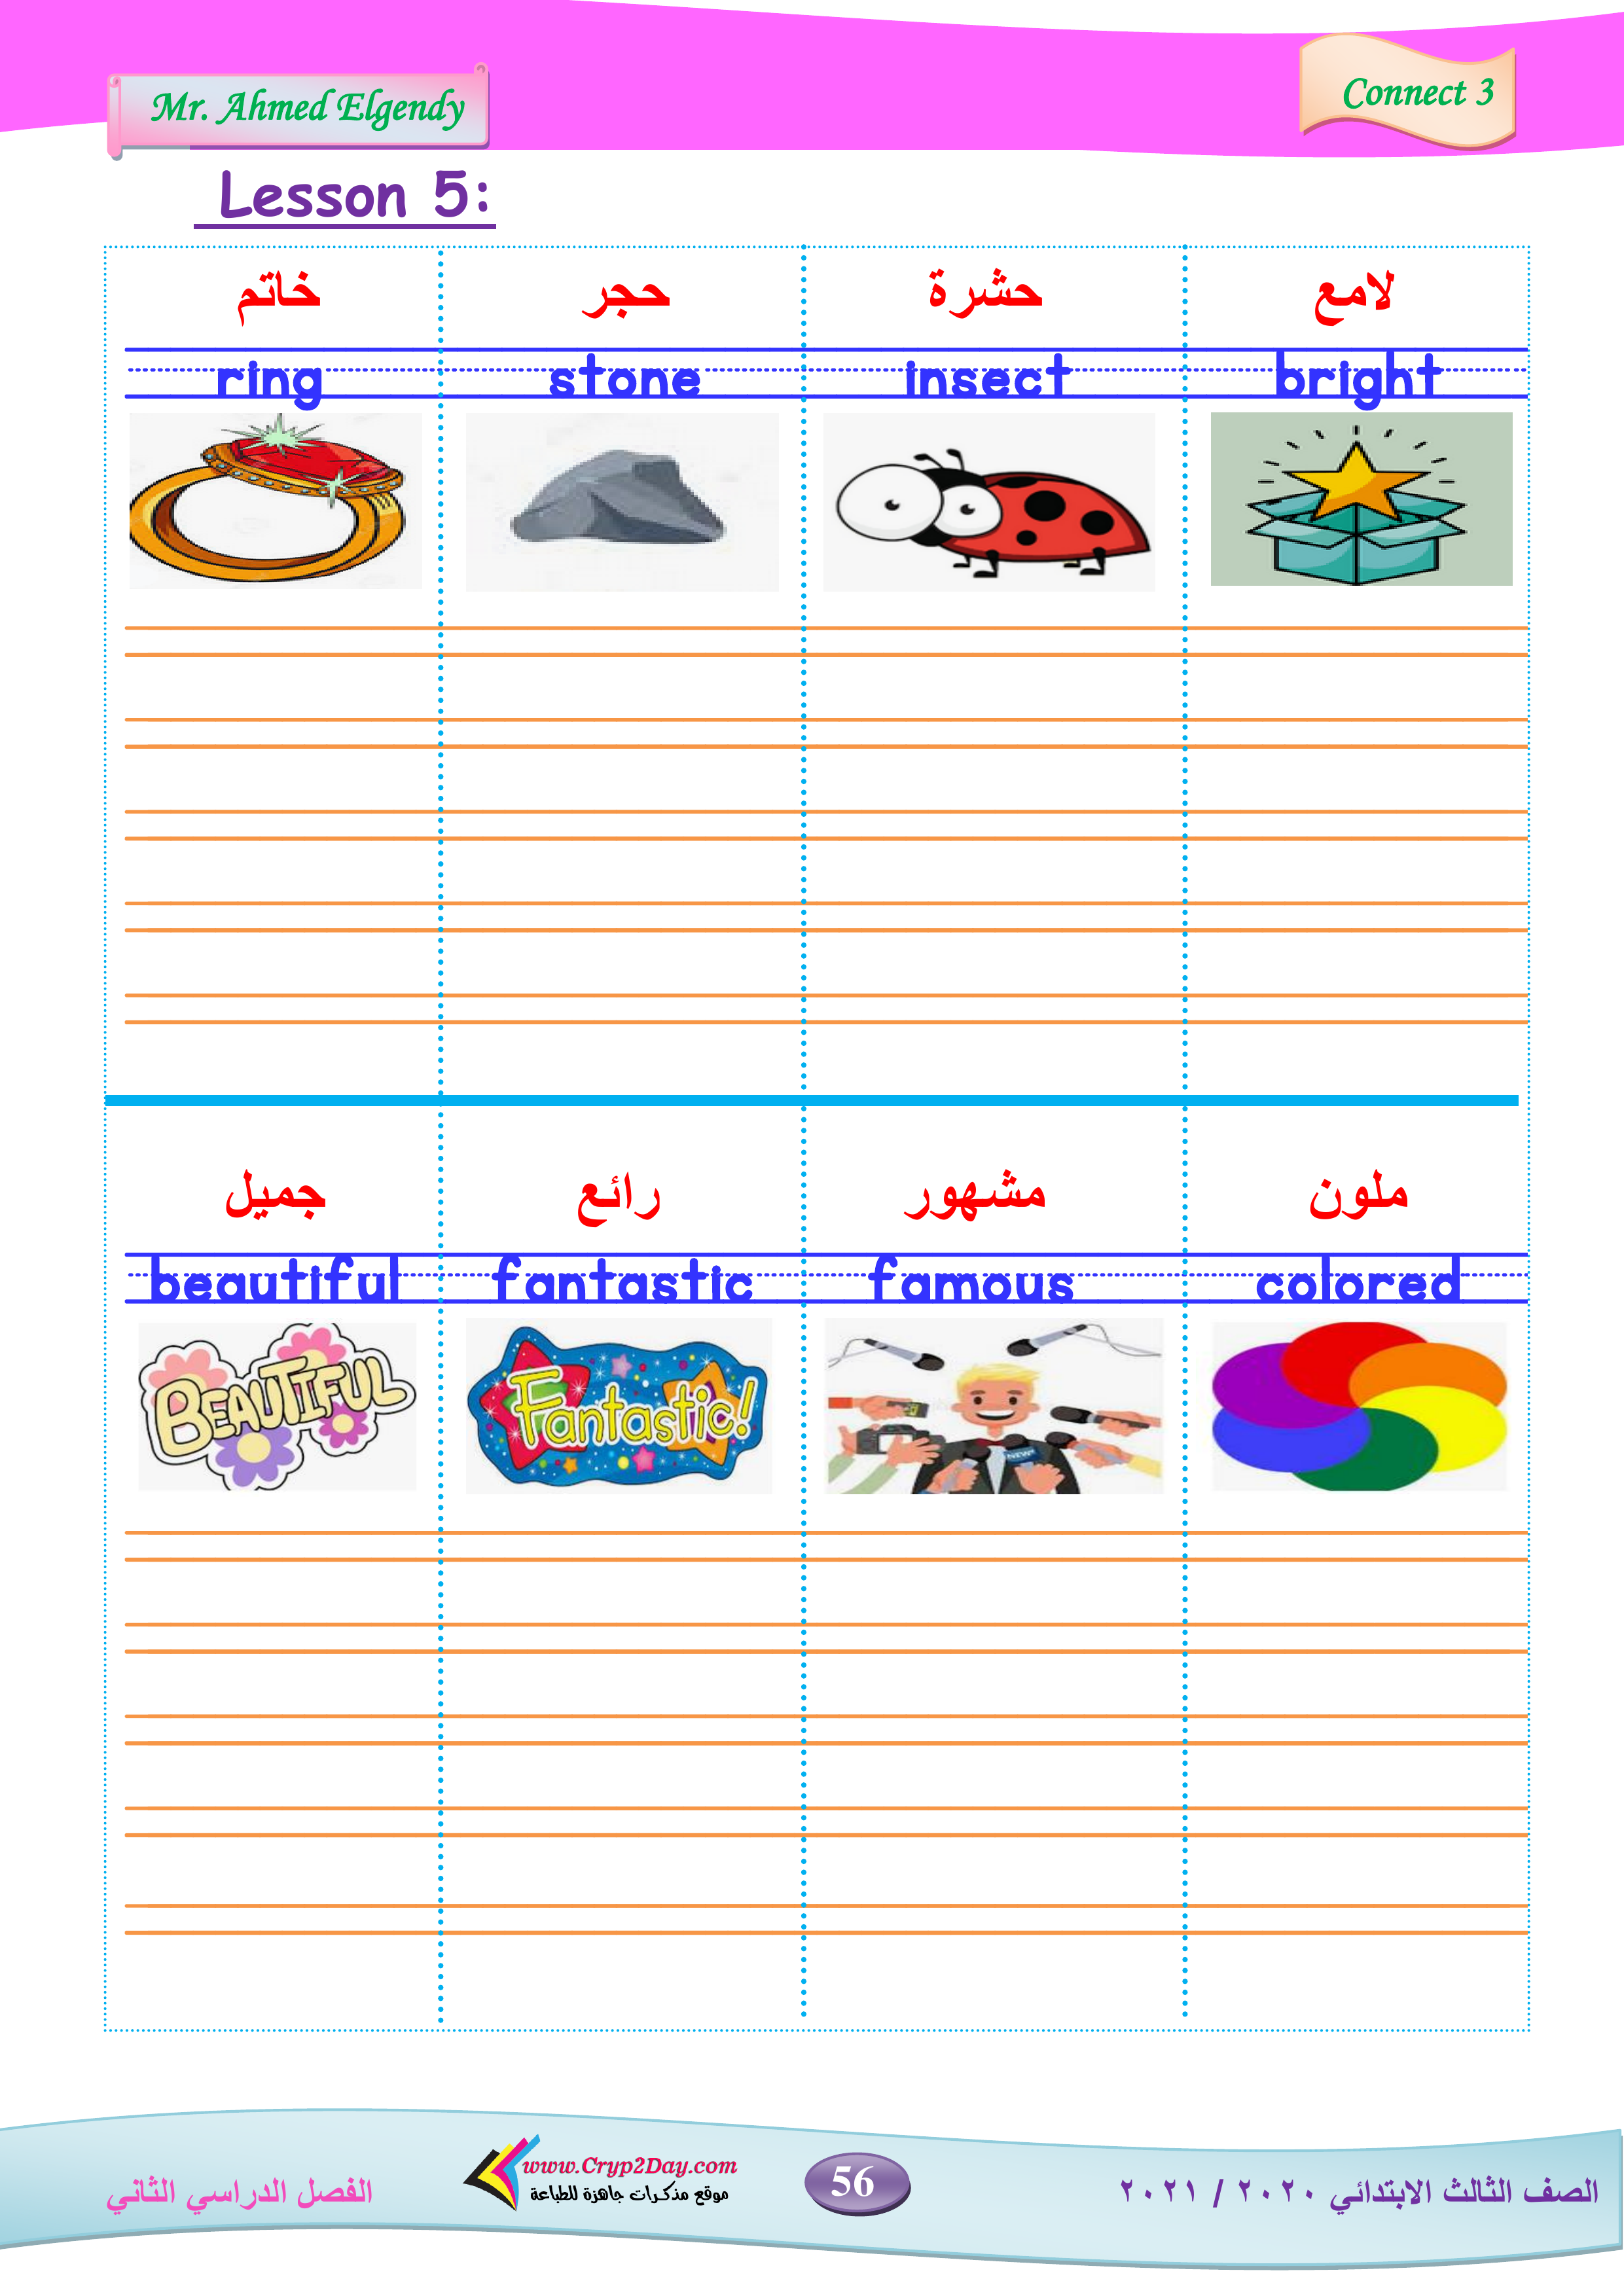 Mr. Ahmed Elgendy
Connect 3
Lesson 5:
خاتم حجر حشرة لامع
ring stone insect bright
جميل رائع مشهور ملون
beautiful fantastic famous colored
BEAUTIFUL Fantastic!
NEWS
www.Cryp2Day.com
موقع مذكرات جاهزة للطباعة
الفصل الدراسي الثاني
56
الصف الثالث الابتدائي ٢٠٢٠ / ٢٠٢١